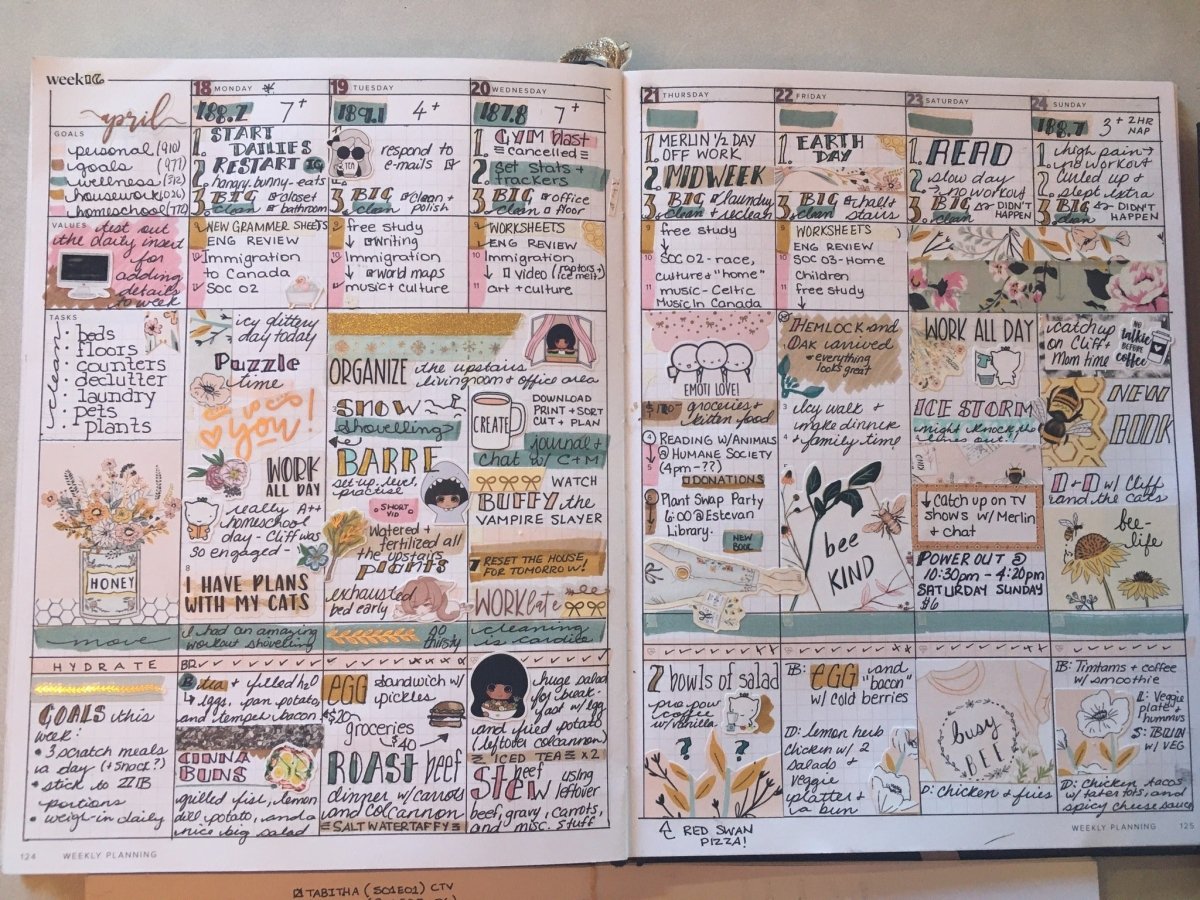 week 16
april
GOALS
personal (910)
goals (971)
wellness (512)
housework (026)
homeschool (772)
VALUES
test out
the daily insert
for
adding
details
to week
TASKS
clean!
beds
floors
counters
declutter
laundry
pets
plants
HONEY
move
HYDRATE
GOALS this
week:
• 3 scratch meals
a day (+ snack?)
• stick to
portions
• weigh-in daily
124 WEEKLY PLANNING
18 MONDAY
188.2 7+
1. START
DAILIES
RESTART IG
2. hangry bunny - eats
3. BIG closet
clean bathroom
9 NEW GRAMMER SHEETS
ENG REVIEW
10 Immigration
to Canada
11 SOC 02
icy glittery
day today
Puzzle
time
yes
you!
WORK
ALL DAY
really A++
homeschool
day - Cliff was
so engaged -
8
I HAVE PLANS
WITH MY CATS
I had an amazing
workout shovelling
B: tea + filled h2o
↳ eggs, pan potato,
and tempeh bacon
CINNA
BUNS
grilled fish, lemon
dill potato, and a
nice big salad
19 TUESDAY
189.1 4+
1. respond to
e-mails
TEA
3. BIG clean +
clean polish
9 free study
↓ writing
10 Immigration
↓ world maps
11 music + culture
ORGANIZE the upstairs
livingroom + office area
SNOW
shovelling
BARRE
set up, level,
practise
SHORT
VID
Watered +
fertilized all
the upstairs
plants
exhausted
bed early
so
thirsty
EGG sandwich w/
pickles
$20
groceries
$40
ROAST beef
dinner w/ carrots
and colcannon
SALT WATER TAFFY
20 WEDNESDAY
187.8 7+
1. GYM blast
cancelled
2. set stats +
trackers
3. BIG office
clean floor
9 WORKSHEETS
ENG REVIEW
10 Immigration
↓ video (raptors + ice melt)
11 art + culture
CREATE
DOWNLOAD
PRINT + SORT
CUT + PLAN
journal +
chat w/ C+M
WATCH
BUFFY the
VAMPIRE SLAYER
7 RESET THE HOUSE,
FOR TOMORROW!
WORK late
cleaning
is cardio
huge salad
for break-
fast w/ egg
and fried potato
(leftover colcannon)
ICED TEA x2
beef
STEW using
leftover
beef, gravy, carrots,
and misc. stuff
21 THURSDAY
1. MERLIN 1/2 DAY
OFF WORK
2. MIDWEEK
3. BIG laundry
clean + reclean
9 free study
↓
10 SOC 02 - race,
culture + "home"
11 music - Celtic
Music in Canada
EMOTI LOVE!
groceries +
kitten food
4 READING W/ANIMALS
@ HUMANE SOCIETY
5 (4pm - ??)
DONATIONS
6 Plant Swap Party
6:00 @ Estevan
Library.
NEW
BOOK
2 bowls of salad
coffee
w/ vanilla
? ?
RED SWAN
PIZZA!
22 FRIDAY
1. EARTH
DAY
3. BIG hall +
clean stairs
9 WORKSHEETS
ENG REVIEW
10 SOC 03 - Home
Children
11 free study
↓
HEMLOCK and
OAK arrived
• everything
looks great
3 Icy walk +
make dinner
4 + family time
bee
KIND
B: EGG and
"bacon"
w/ cold berries
D: lemon herb
chicken w/ 2
salads +
veggie
platter +
a bun
23 SATURDAY
1. READ
2. slow day
→ no workout
3. BIG DIDN'T
clean HAPPEN
WORK ALL DAY
ICE STORM
might knock the
power out!
↓ catch up on TV
shows w/ Merlin
+ chat
POWER OUT @
10:30pm - 4:20pm
SATURDAY SUNDAY
$6
busy
BEE
D: chicken + fries
24 SUNDAY
188.7 3+ 2HR
NAP
1. high pain →
no workout
2. curled up +
slept extra
3. BIG DIDN'T
clean HAPPEN
catch up
on Cliff +
Mom time
NO
talkie
BEFORE
coffee
NEW
BOOK
D+D w/ Cliff
and the cats
bee-
life
B: Timtams + coffee
w/ smoothie
L: Veggie
plate +
hummus
W/ VEG
D: chicken tacos
w/ tater tots, and
spicy cheese sauce
WEEKLY PLANNING 125
TABITHA (S01E01) CTV